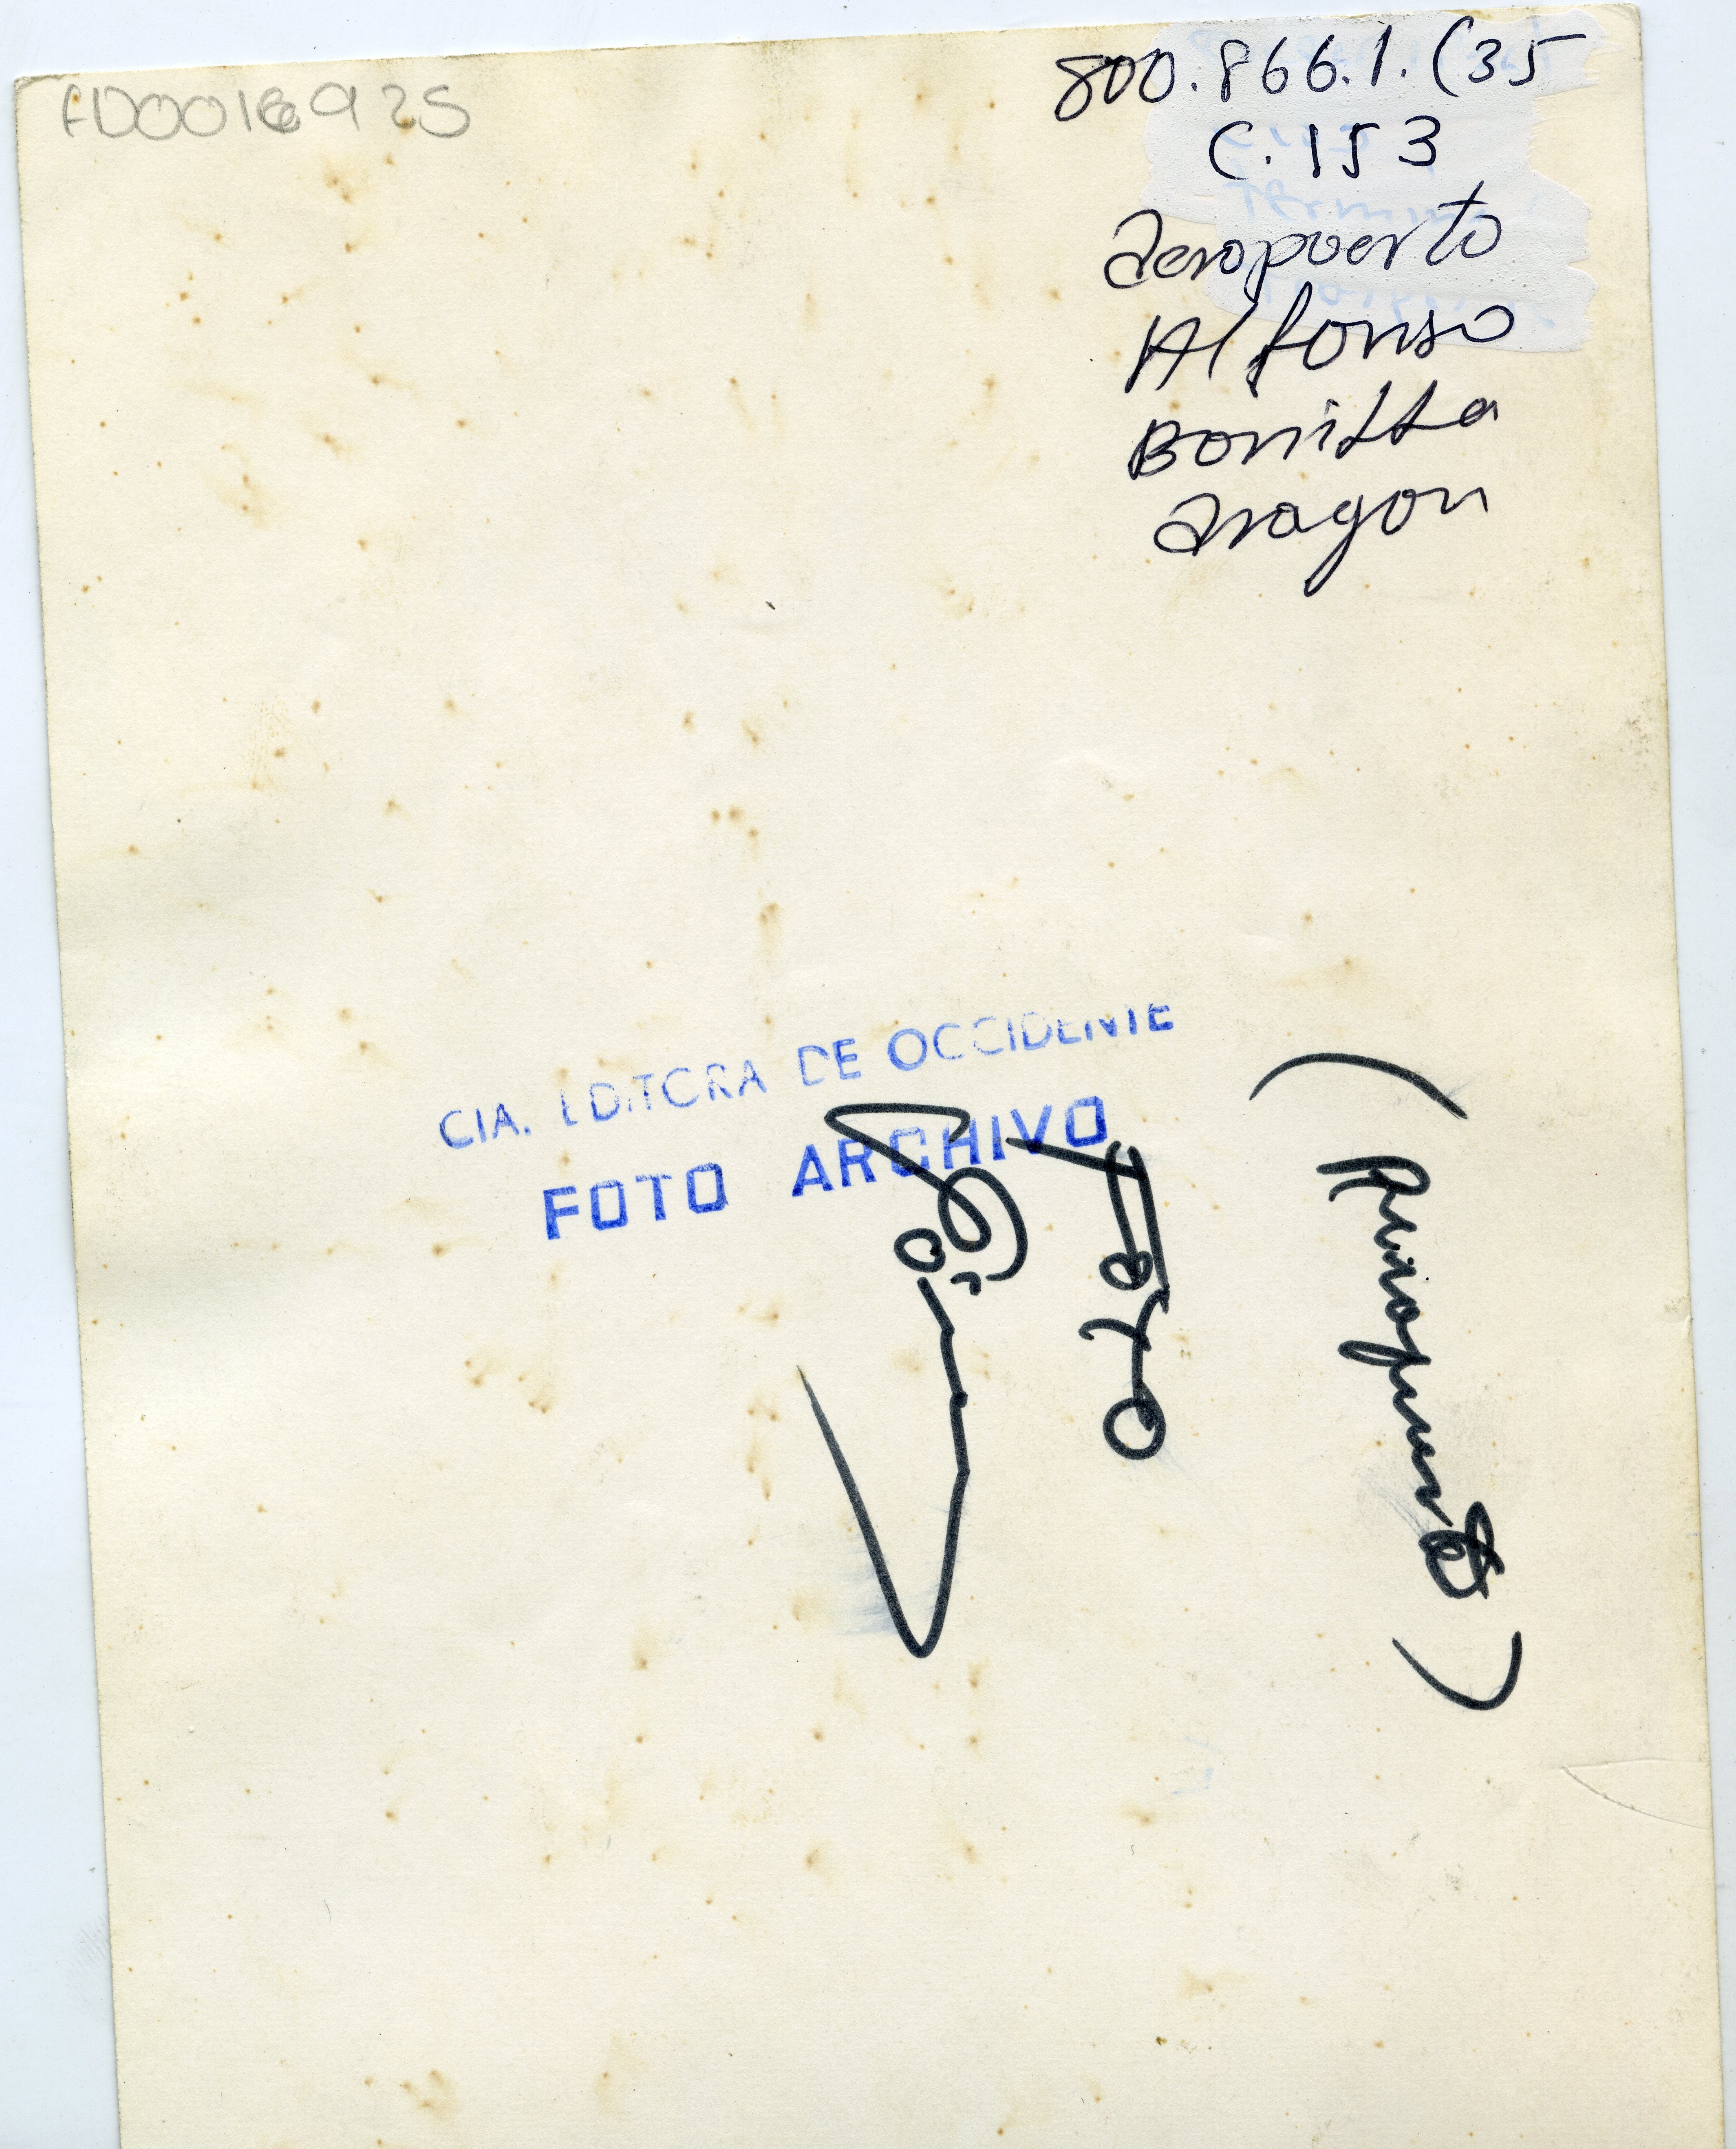 FD0016925
800.866.1.(35
C.153
Aeropuerto
Alfonso
Bonilla
Aragon
CIA. EDITORA DE OCCIDENTE
FOTO ARCHIVO
(Aeropuerto)
Foto